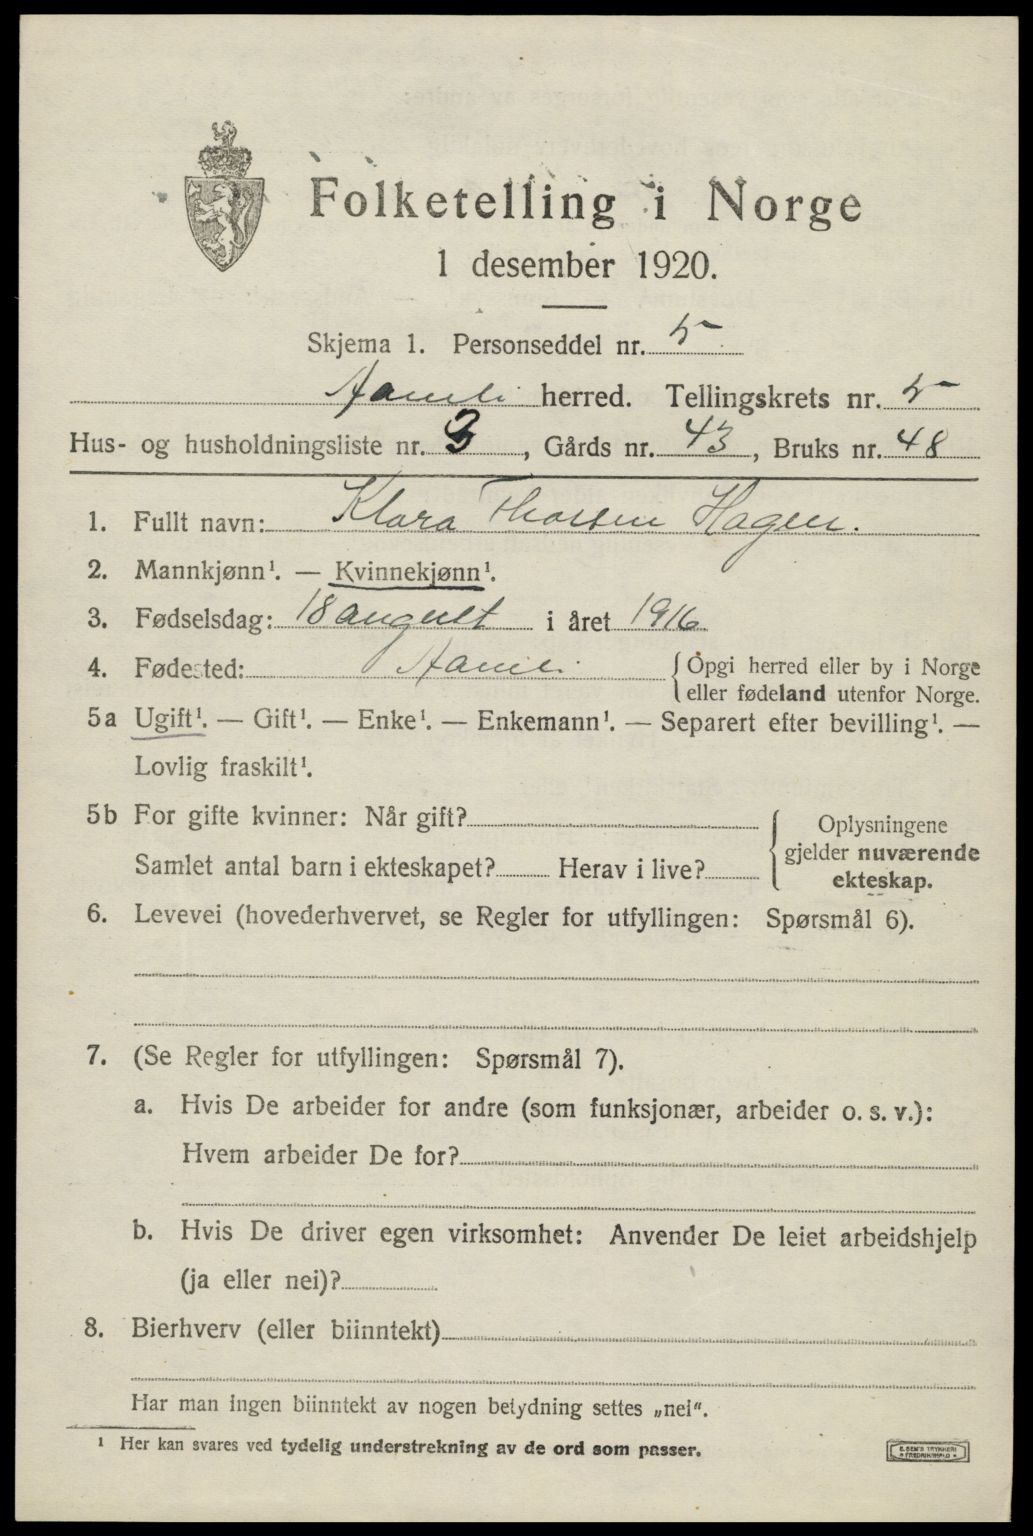 Folketelling i Norge
1 desember 1920.
Skjema 1. Personseddel nr. 5
Aamli herred. Tellingskrets nr. 5
Hus- og husholdningsliste nr. 3, Gårds nr. 43, Bruks nr. 48
1. Fullt navn: Klara Thorsen Hagen.
2. Mannkjønn¹. — Kvinnekjønn¹.
3. Fødselsdag: 18 august i året 1916
4. Fødested: Aamli {Opgi herred eller by i Norge
eller fødeland utenfor Norge.
5a Ugift¹. — Gift¹. — Enke¹. — Enkemann¹. — Separert efter bevilling¹. —
Lovlig fraskilt¹.
5b For gifte kvinner: Når gift?
Samlet antal barn i ekteskapet? Herav i live?
Oplysningene
gjelder nuværende
ekteskap.
6. Levevei (hovederhvervet, se Regler for utfyllingen: Spørsmål 6).
7. (Se Regler for utfyllingen: Spørsmål 7).
a. Hvis De arbeider for andre (som funksjonær, arbeider o. s. v.):
Hvem arbeider De for?
b. Hvis De driver egen virksomhet: Anvender De leiet arbeidshjelp
(ja eller nei)?
8. Bierhverv (eller biinntekt)
Har man ingen biinntekt av nogen betydning settes „nei".
¹ Her kan svares ved tydelig understrekning av de ord som passer.
E. SEM'S TRYKKERI
FREDRIKSHALD